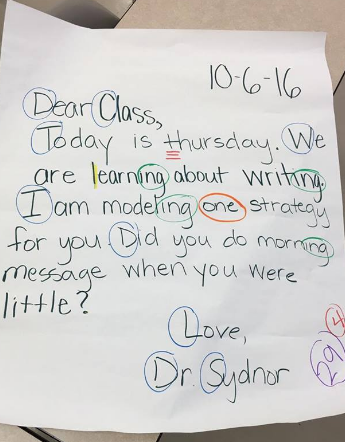 10-6-16
Dear Class,
Today is thursday. We
are learning about writing.
I am modeling one strategy
for you. Did you do morning
message when you were
little?
Love,
Dr. Sydnor
4
29